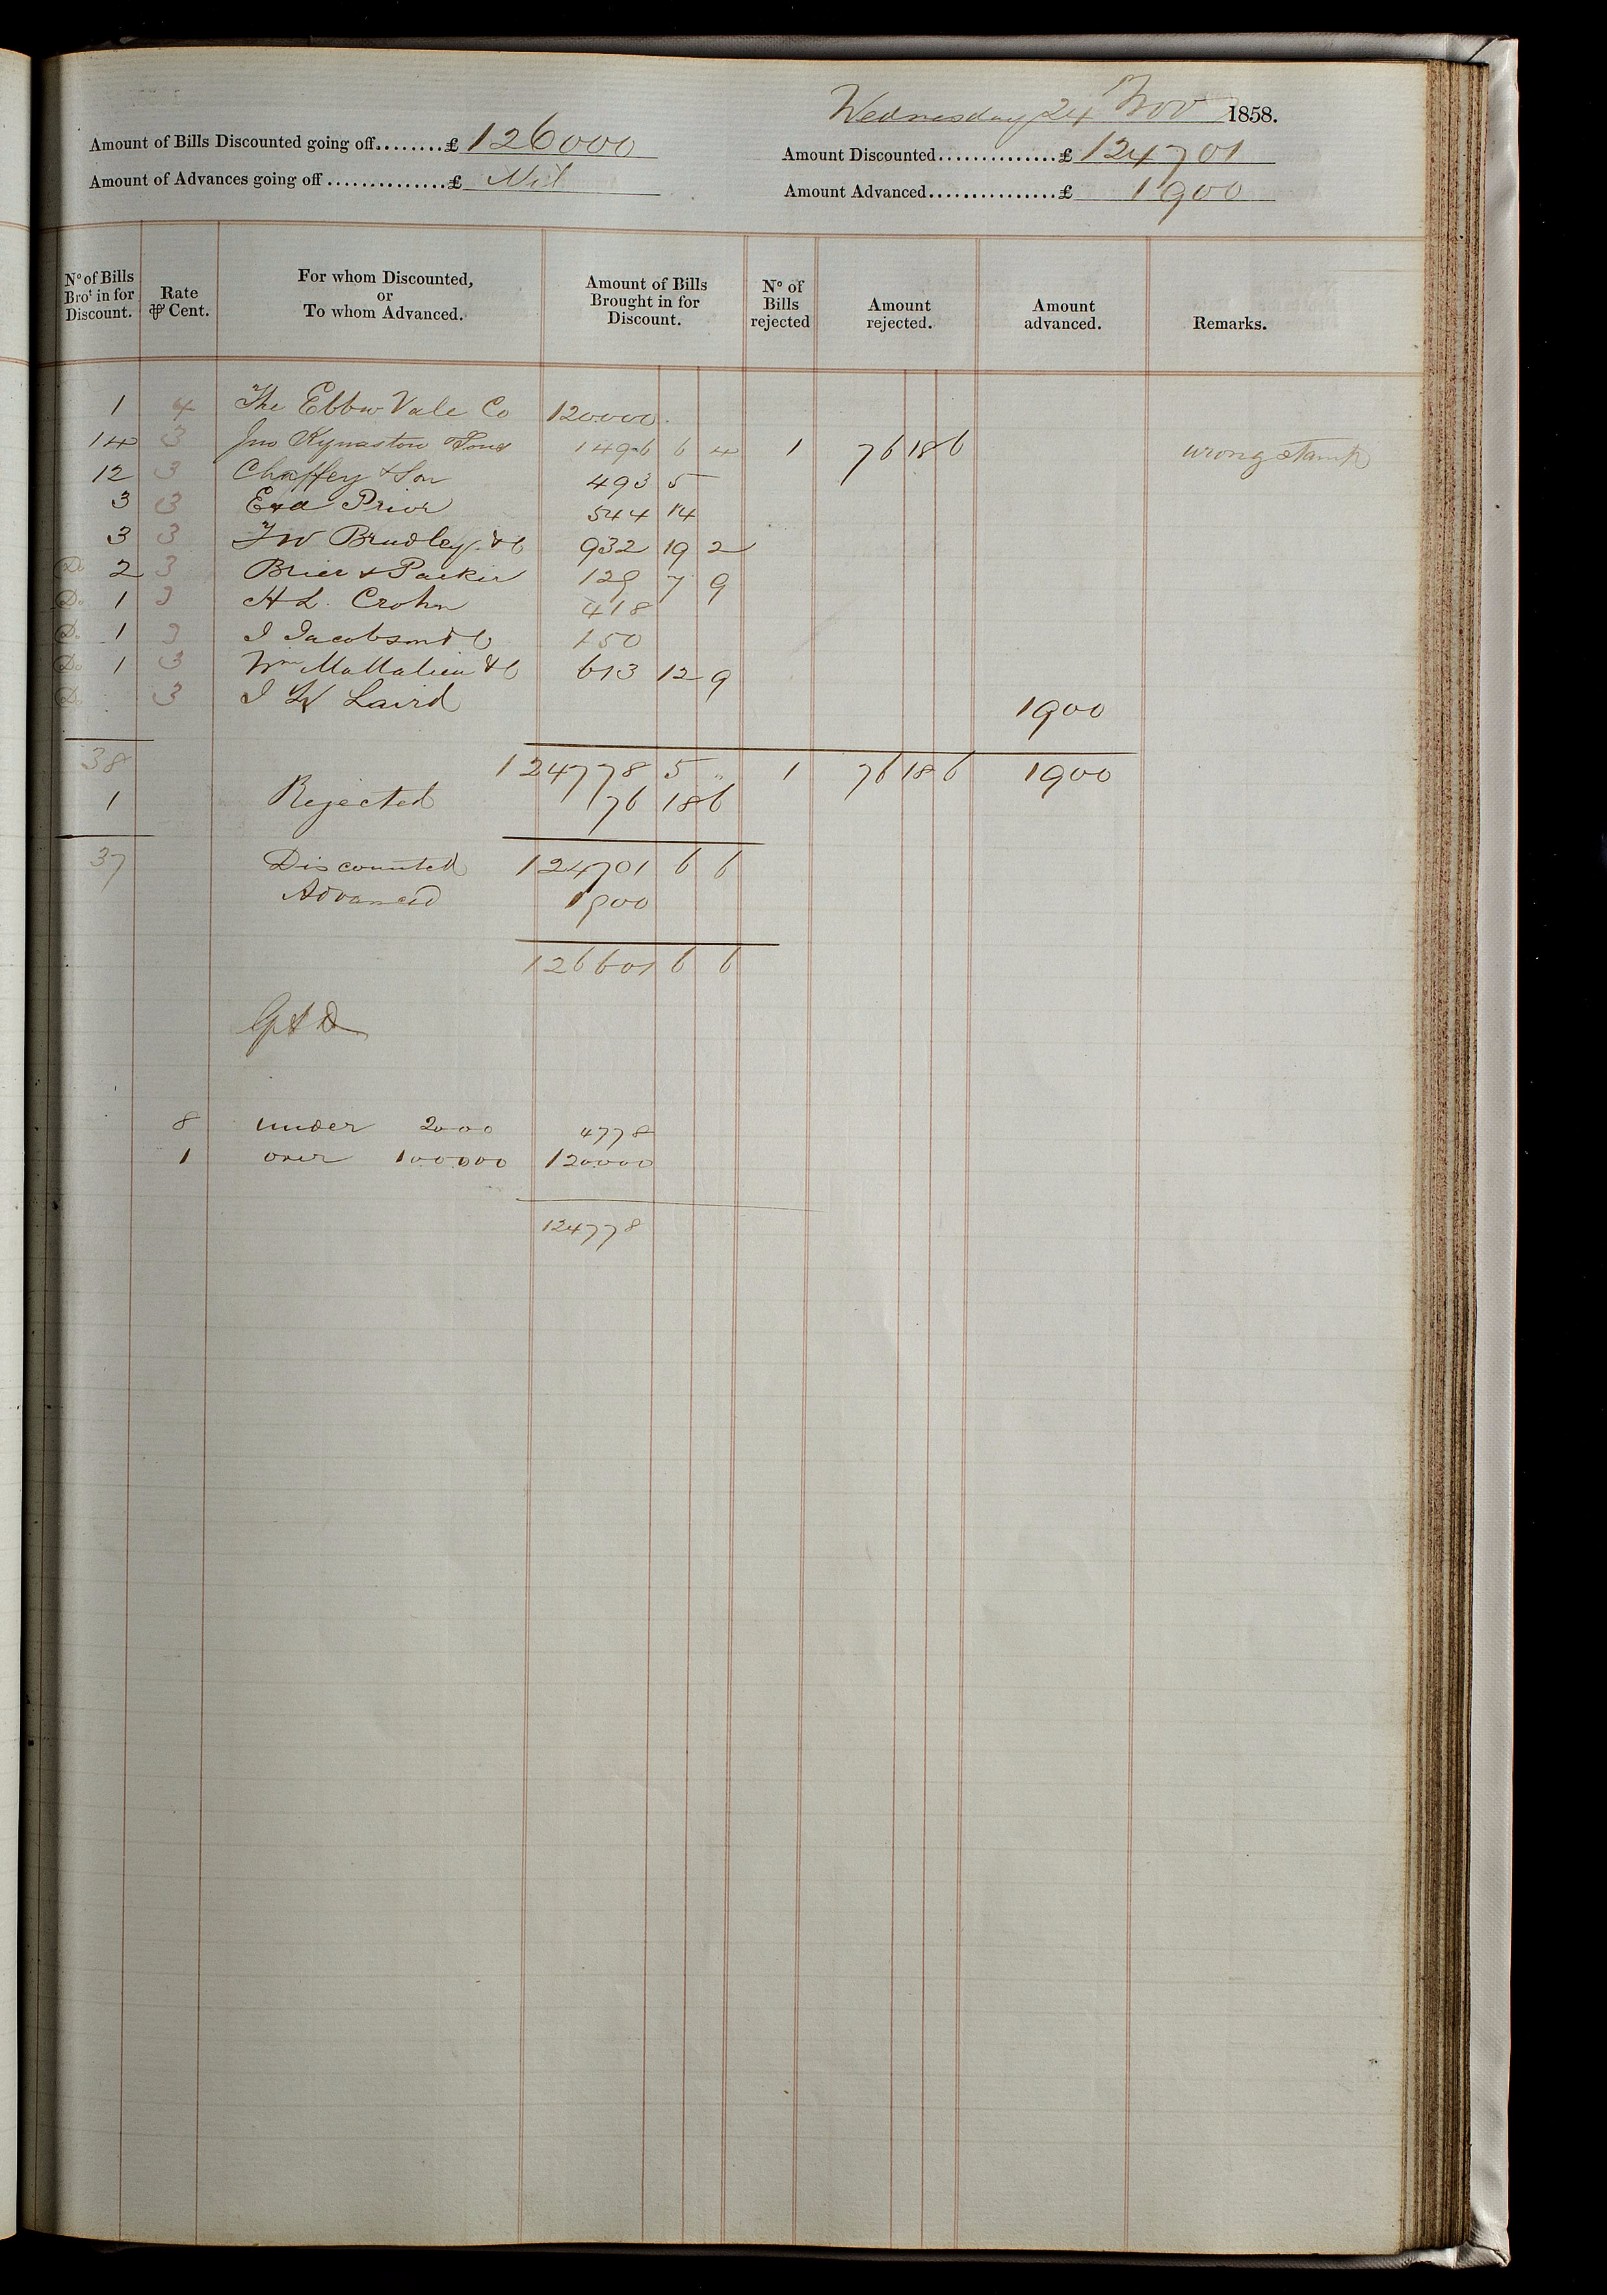 Wednesday 24 Nov 1858.
Amount of Bills Discounted going off........£ 126000
Amount Discounted...............£ 124701
Amount of Advances going off ..............£ Nil
Amount Advanced................£ 1900
No of Bills Brot in for Discount. | Rate ⅌ Cent. | For whom Discounted, or To whom Advanced. | Amount of Bills Brought in for Discount. | No of Bills rejected | Amount rejected. | Amount advanced. | Remarks.
1 4 The Ebbw Vale Co 120000
14 3 Jno Kynaston & Sons 1496 6 4 1 76 18 6 wrong stamp
12 3 Chaffey & Son 493 5
3 3 Prior 544 14
3 3 Bradley & Co 932 19 2
Do 2 3 Brier & Packer 129 7 9
Do 1 3 H L Crohn 418
Do 1 3 I Jacobson & Co 150
Do 1 3 Wm Mallalieu & Co 613 12 9
Do 3 Laird 1900
38 124778 5 " 1 76 18 6 1900
1 Rejected 76 18 6
37 Discounted 124701 6 6
Advanced 1900
126601 6 6
8 under 2000 4778
1 over 100000 120000
124778